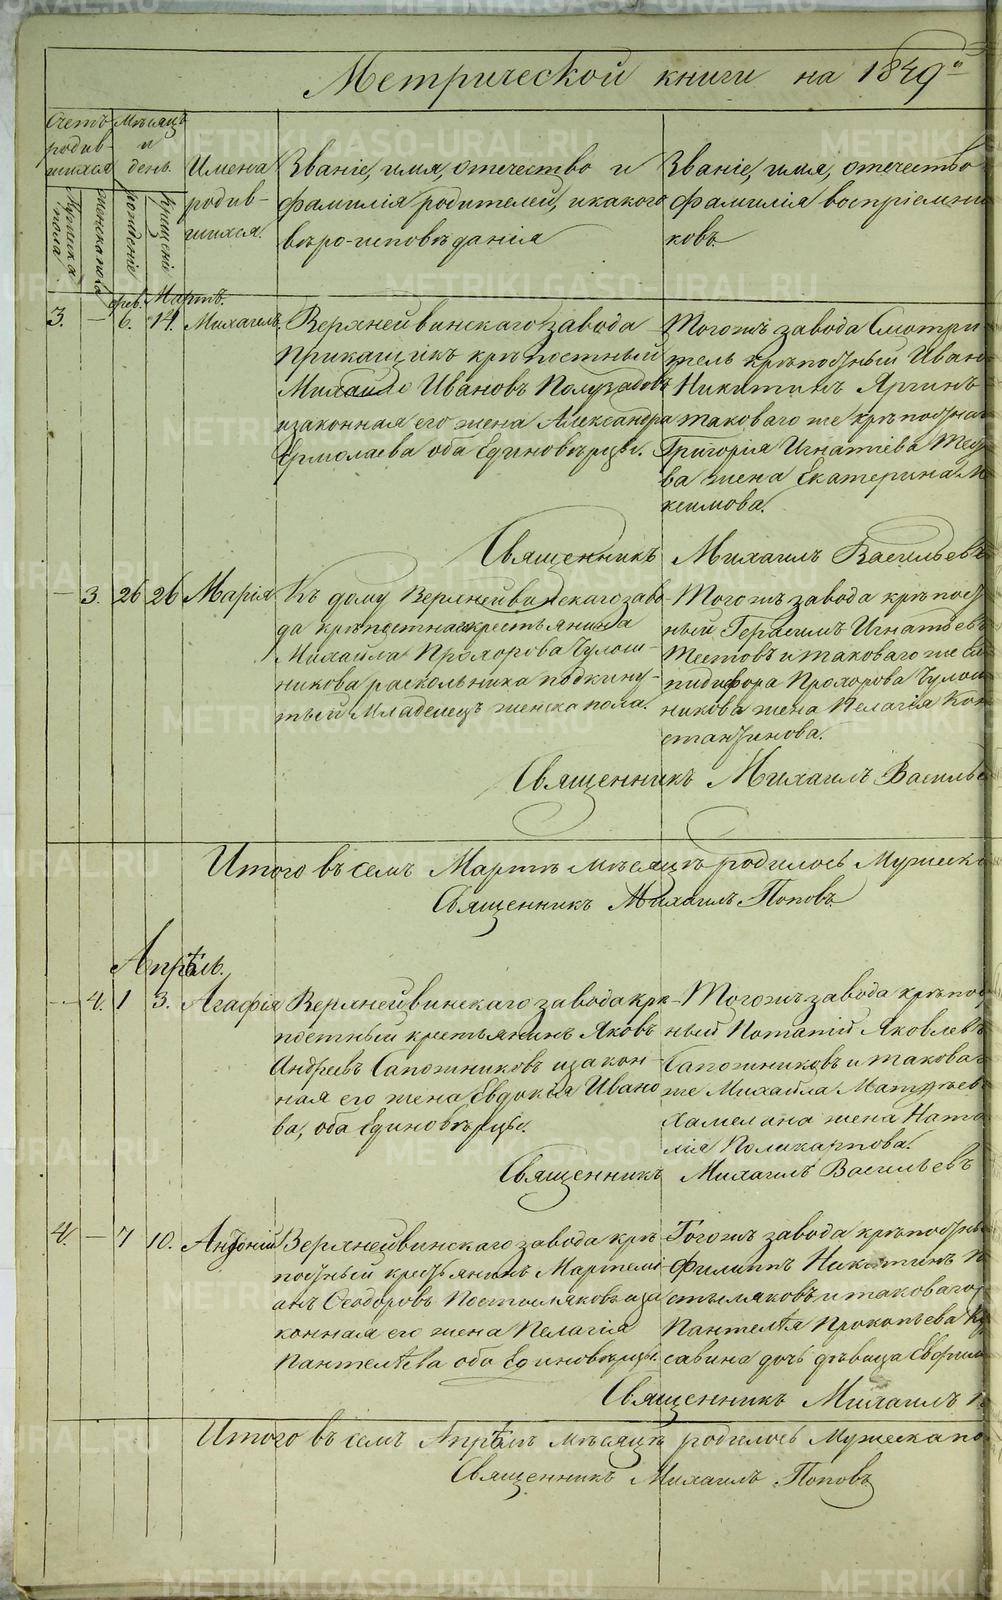 Метрической книги на 1849го
Счетъ родив-шихся
Мѣсяцъ и день.
Имена родив-шихся.
Званіе, имя, отечество и фамилія родителей, и какого вѣро-исповѣданія
Званіе, имя, отечество фамилія воспріемни ковъ
Мужеска пола
женска пола
рожденіе
крещеніе
фев. Мартъ.
3. — 6. 14. Михаилъ.
Верхнейвинскаго завода
Прикащикъ крѣпостный
Михайло Ивановъ Полузадовъ
изаконная его жена Александра
Ермолаева оба Единовѣрцы.
Тогожъ завода Смотри
тель крѣпостный Иванъ
Никитинъ Яргинъ
и таковаго же крѣпостнаг
Григорія Игнатіева
ва жена Екатерина М
ксимова.
Священникъ Михаилъ Васильевъ
— 3. 26 26 Марія
Къ дому Верхнейвинскаго заво
да крѣпостнаго крестьянина
Михайла Прохорова Чулош-
никова раскольника подкину-
тый Младенецъ женска пола.
Тогожъ завода крѣпост
ный Герасимъ Игнатьевъ
Шестовъ и таковаго же
пидифора Прохорова Чулош
никова жена Пелагія Кон
стантинова.
Священникъ Михаилъ Василье
Итого въ семъ Мартѣ мѣсяцѣ родилось Мужеска
Священникъ Михаилъ Поповъ
Апрѣль.
— 4. 1 3. Агафія
Верхнейвинскаго завода крѣ-
постный крестьянинъ Яковъ
Андреевъ Сапожниковъ изакон-
ная его жена Евдокія Ивано
ва, оба Единовѣрцы.
Тогожъ завода крѣпос
ный Потапій Яковлевъ
Сапожниковъ и таковаг
же Михайла Матвѣев
Хамелина жена Ната
лія Поликарпова.
Священникъ Михаилъ Васильевъ
4. — 7 10. Антоній
Верхнейвинскаго завода крѣ-
постный крестьянинъ Мартемі-
анъ Ѳеодоровъ Постыляковъ иза
конная его жена Пелагія
Пантелѣева оба Единовѣрцы.
Тогожъ завода крѣпостны
Филиппъ Никитинъ П
стыляковъ и таковаго
Пантелѣя Прокопьева
савина дочь дѣвица Евфим
Священникъ Михаилъ П
Итого въ семъ Апрѣлѣ мѣсяцѣ родилось Мужеска по
Священникъ Михаилъ Поповъ
METRIKI.GASO-URAL.RU